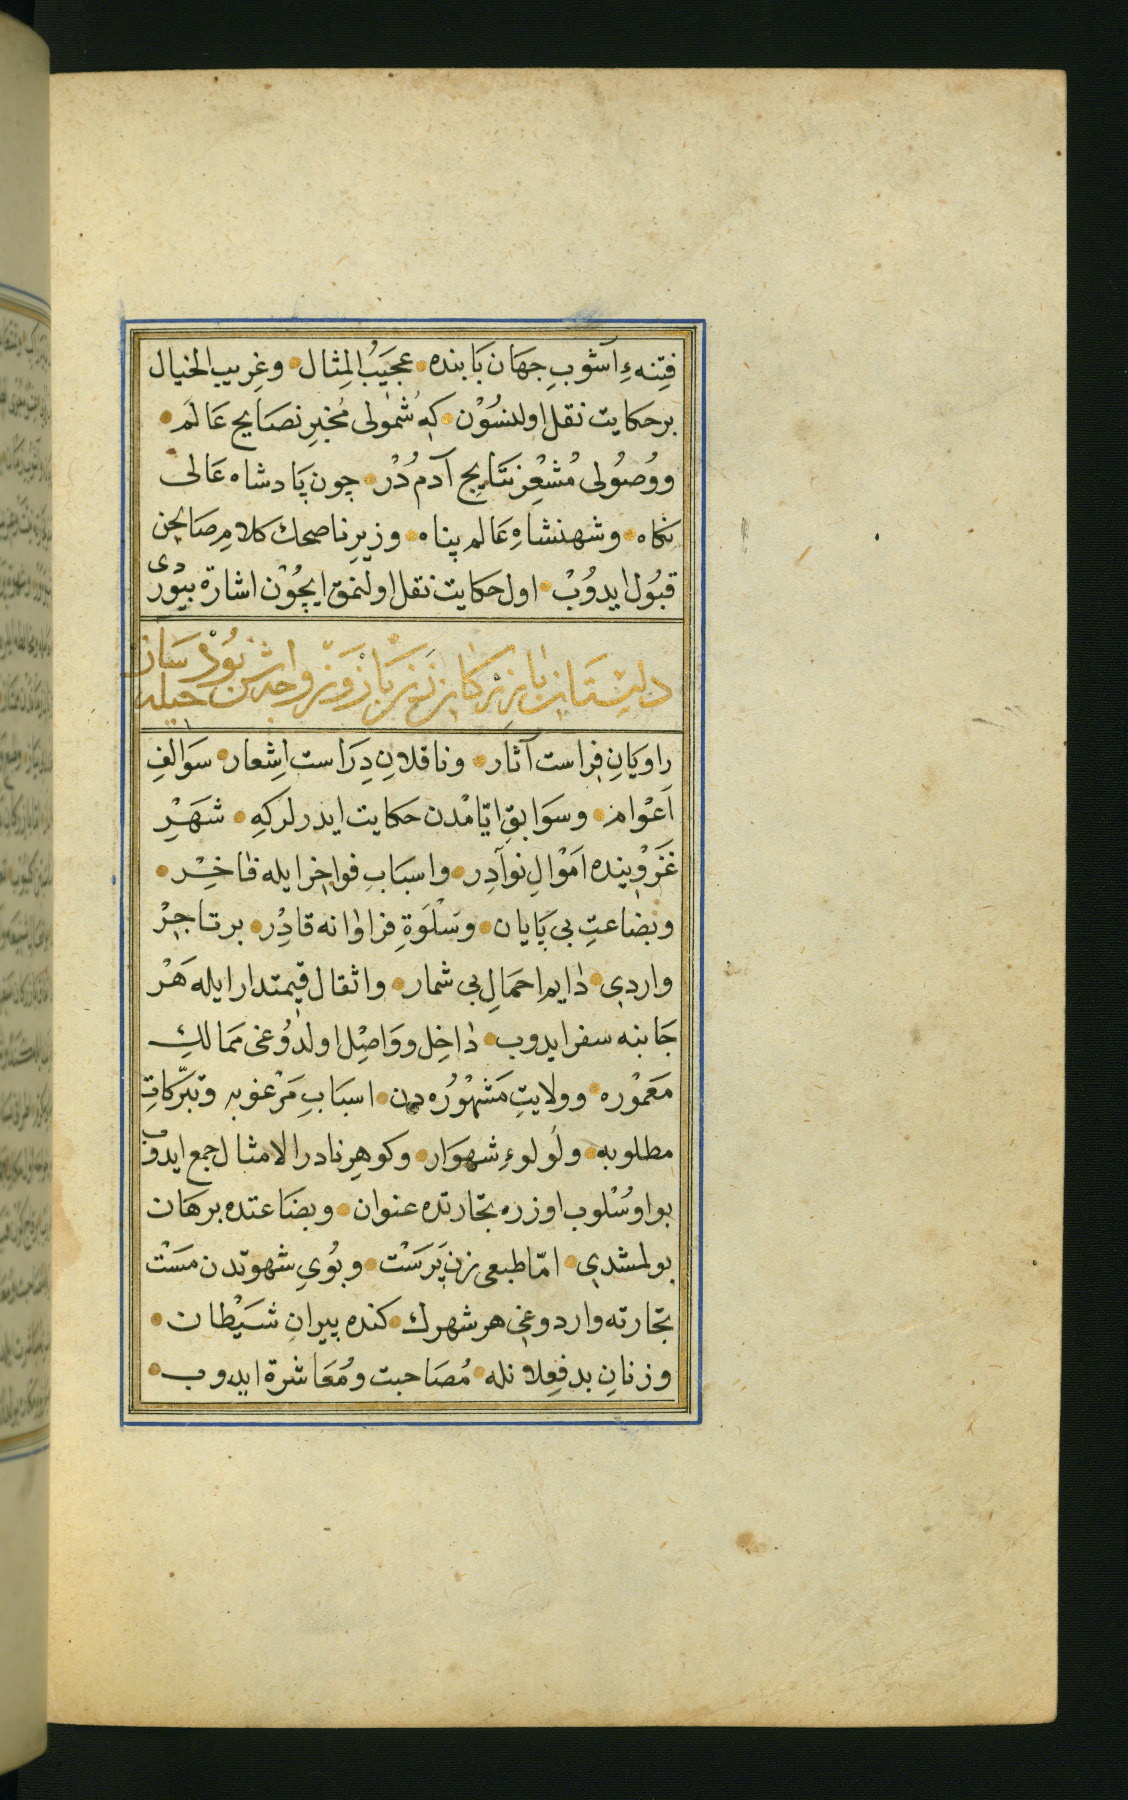 فِتنهءِ آشوبِ جهان بابنده عجيَبُ المِثال وغِريب الخيال
برحكايت نقل اولنسُوْن كهِ شُمولى مُخبِرِ نصَايح عَالَم
ووُصوُلى مُشعِرِ نتَايج آدم دُرْ چون پَادشاه عَالى
نكاه وشهنشاهِ عَالم پناه وزيرِ ناصحك كلامِ صَايحن
قبُول ايدوُبْ اول حكايت نقل اولنمق ايچوُن اشارة بيوُردى
راويانِ فِراست آثار وناقلانِ دِرَاست اِشِعار سوَالفِ
اَعوَام وسوَابقِ ايّامدن حكايت ايدرلركهِ شَهْرِ
غَزوِينده اَموَالِ نوآدِر واسبَابِ فواخِر ايله فاخِرْ
وبضاعتِ بى پَايان وسَلْوَةِ فراوانه قادِرْ برتاجِرْ
واردى دايم احمَالِ بى شمار واثقال قيمتدار ايله هَرْ
جَانبه سفر ايدوب داخِل ووَاصِل اولدوُغى ممَالكِ
مَعْموْره وولايتِ مَشهوُره دن اسبَابِ مَرْغوبه وتبرّكاتِ
مطلوبه ولولوءِ شهوَار وكوهرِ نادر الامثال جمع ايدوب
بو اوُسْلوب اوزره تجّارتده عنوان وبضَاعتده برهَان
بولمشدى امّا طبعى زن پَرَسْت وبُوىِ شهوتدن مَسْت
تجّارته واردوغى هر شهرك كنده پيرانِ شَيْطان
وزنانِ بدفعِلانله مُصَاحبت ومُعَاشرة ايدوب